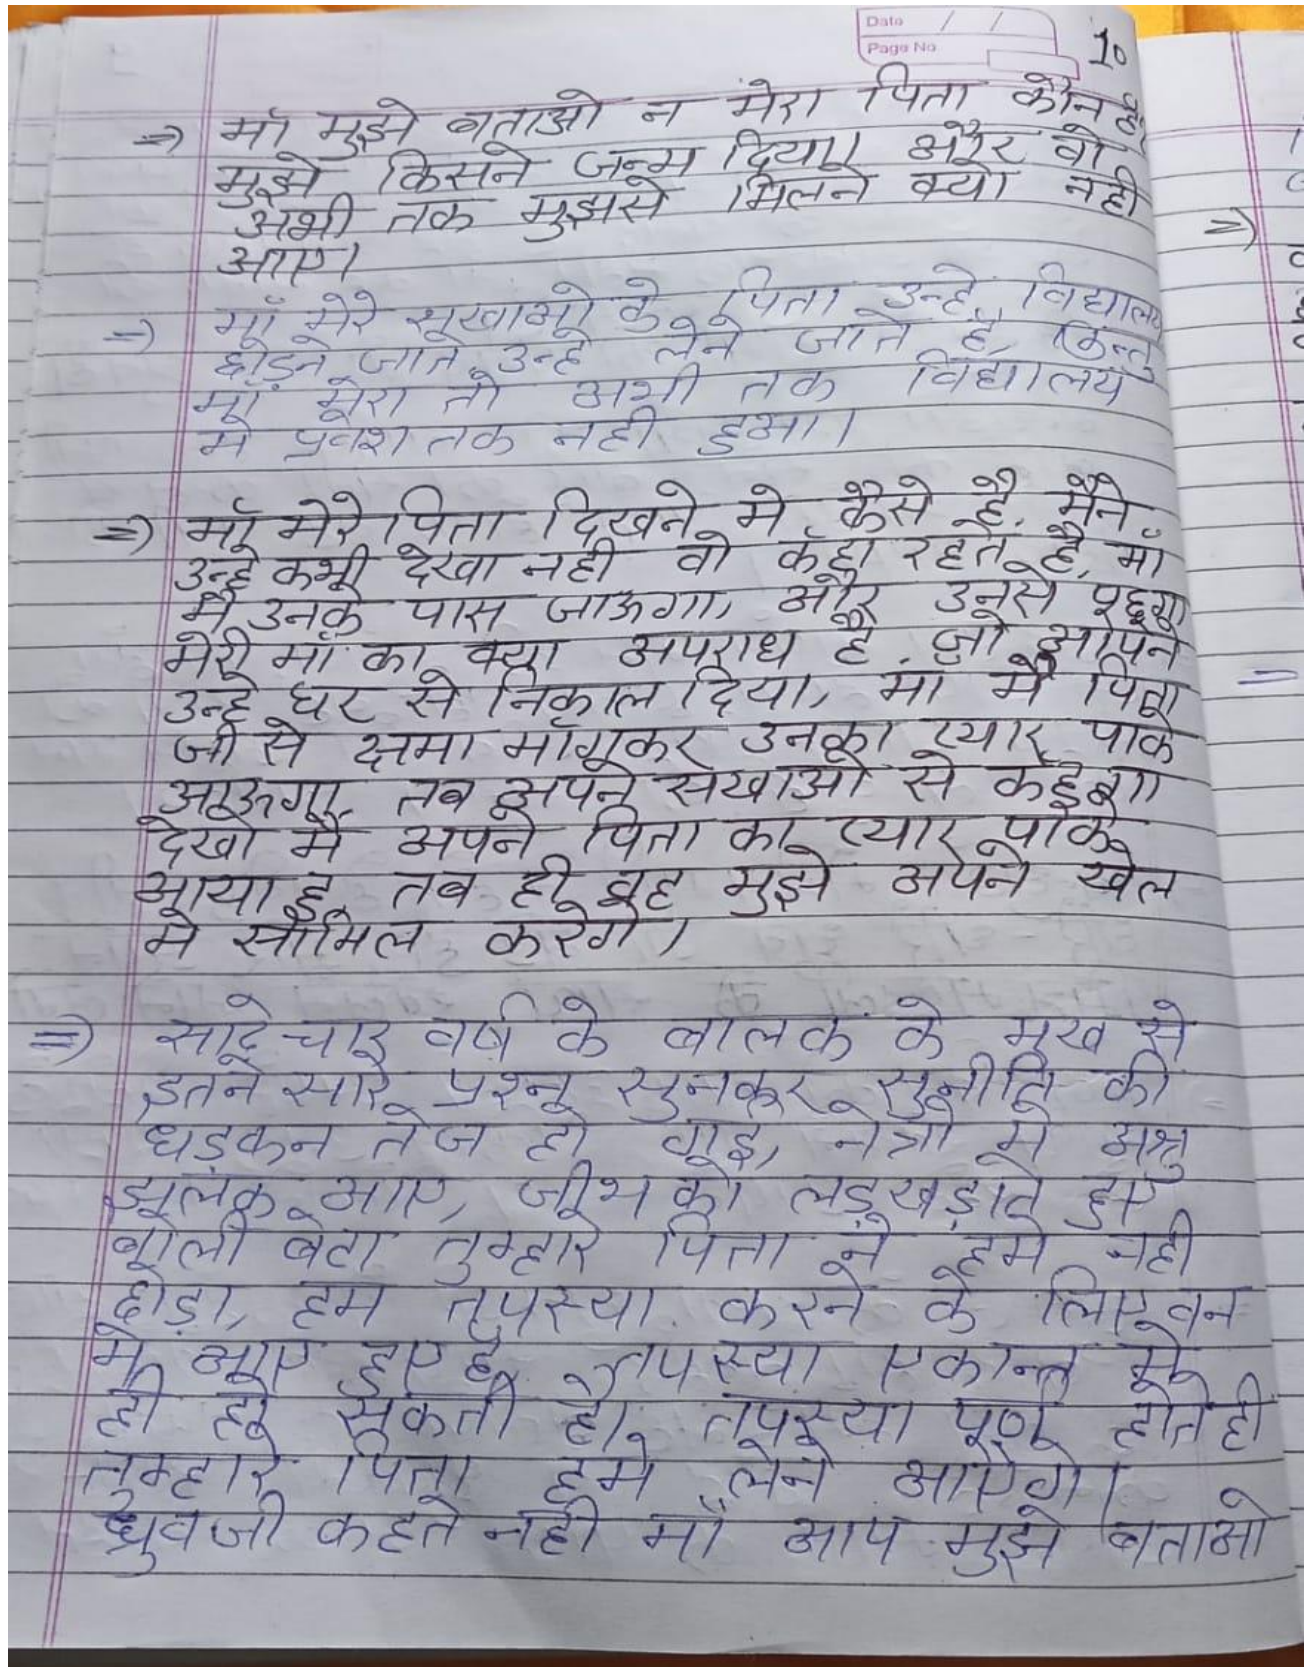 Date / /
Page No
10
⇒ माँ मुझे बताओ न मेरा पिता कौन है।
मुझे किसने जन्म दिया। और वो
अभी तक मुझसे मिलने क्यो नही
आए।
⇒ माँ मेरे सखाओ के पिता उन्हे विद्यालय
छोड़ने जाते, उन्हे लेने जाते है, किन्तु
माँ मेरा तो अभी तक विद्यालय
मे प्रवेश तक नही हुआ।
⇒ माँ मेरे पिता दिखने मे कैसे है, मैने
उन्हे कभी देखा नही वो कँहा रहते है, माँ
मै उनके पास जाऊगा, और उनसे पूछूगा
मेरी माँ का क्या अपराध है, जो आपने
उन्हे घर से निकाल दिया, मां मै पिता
जी से क्षमा माँगकर उनका प्यार पाके
आऊगा, तब अपने सखाओ से कहूगा
देखो मै अपने पिता का प्यार पाके
आया हू, तब ही वह मुझे अपने खेल
मे सामिल करेगे।
⇒ साढ़े चार वर्ष के बालक के मुख से
इतने सारे प्रश्न सुनकर सुनीति की
धड़कन तेज हो गइ, नेत्रो मे अश्रु
झलक आए, जीभ को लड़खड़ाते हुए
बोली बेटा तुम्हारे पिता ने हमे नही
छोड़ा, हम तपस्या करने के लिए वन
मे आए हुए है, तपस्या एकान्त मे
ही हो सकती है। तपस्या पूर्ण होते ही
तुम्हारे पिता हमे लेने आएगे।
ध्रुव जी कहते नही माँ आप मुझे बताओ